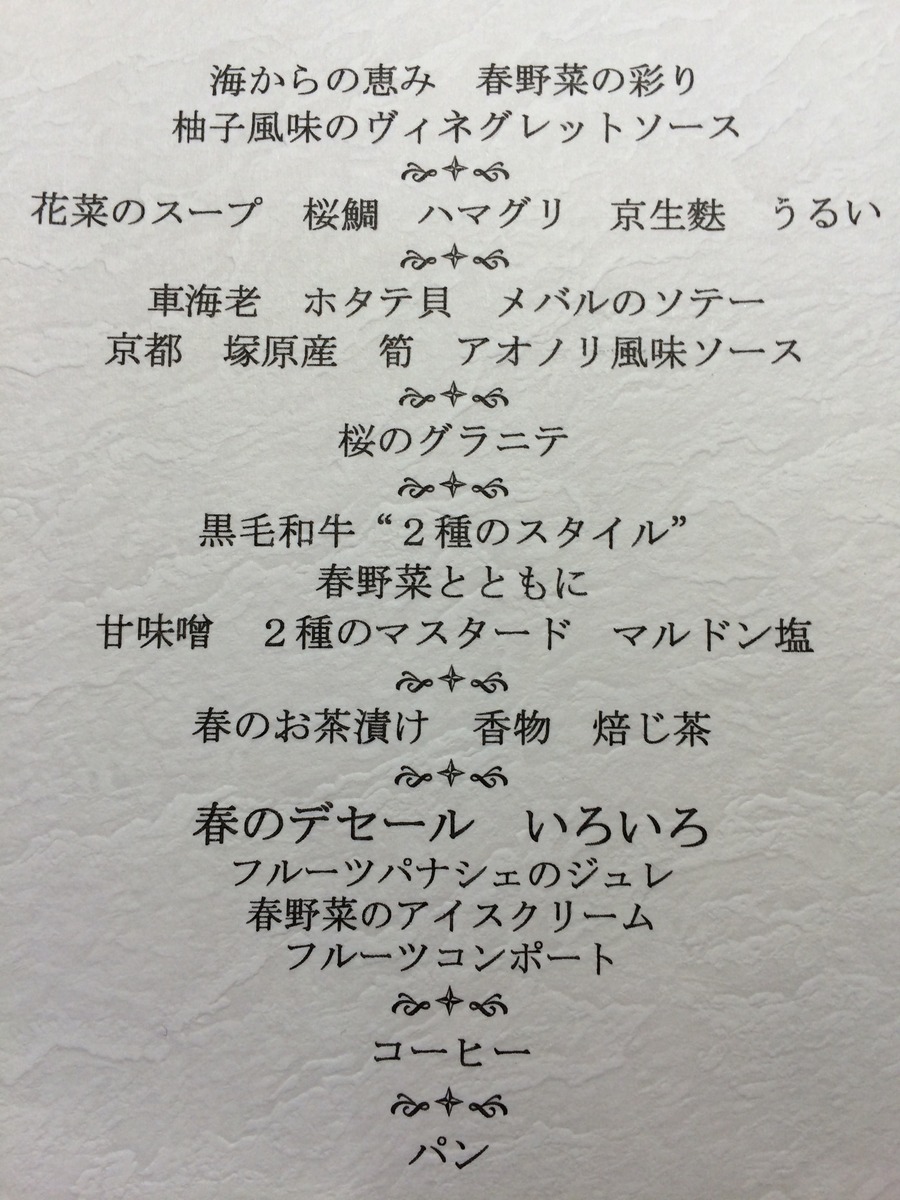 海からの恵み　春野菜の彩り
柚子風味のヴィネグレットソース
花菜のスープ　桜鯛　ハマグリ　京生麩　うるい
車海老　ホタテ貝　メバルのソテー
京都　塚原産　筍　アオノリ風味ソース
桜のグラニテ
黒毛和牛“２種のスタイル”
春野菜とともに
甘味噌　２種のマスタード　マルドン塩
春のお茶漬け　香物　焙じ茶
春のデセール　いろいろ
フルーツパナシェのジュレ
春野菜のアイスクリーム
フルーツコンポート
コーヒー
パン